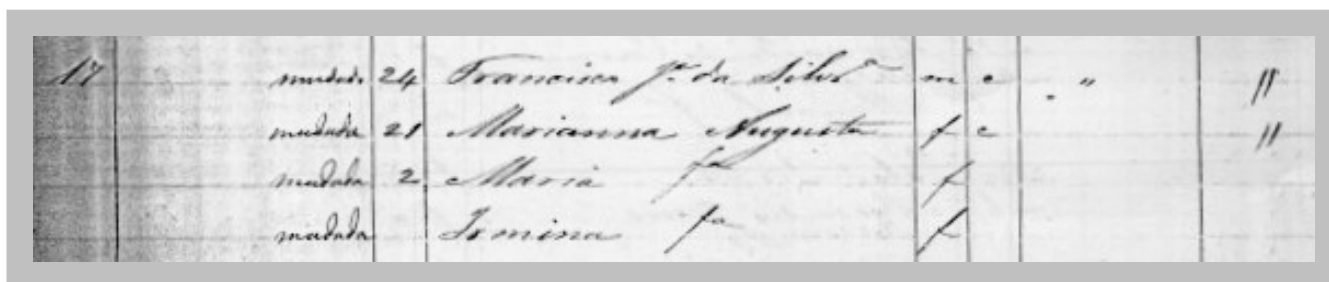 17 mudado 24 Francisco Jᵉ da Silvᵃ m c " "
mudada 21 Marianna Augusta f c "
mudada 2 Maria fᵃ f
mudada Ismina fᵃ f